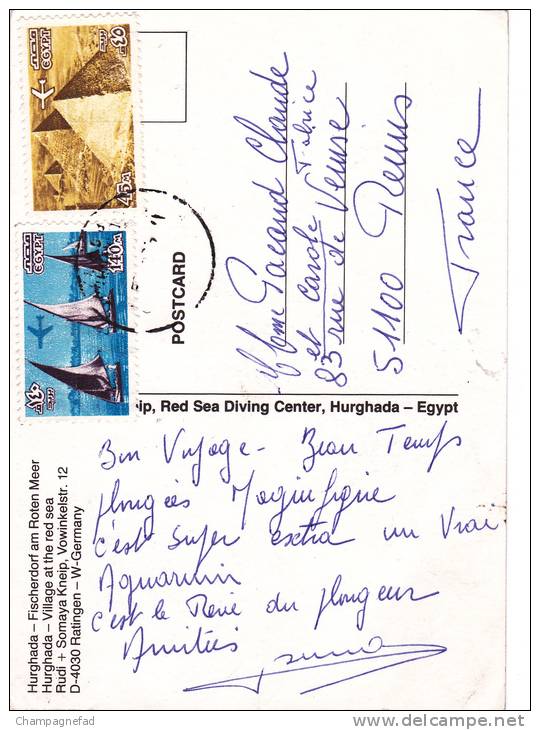 مصر
EGYPT
45 M
٤٥
مصر
EGYPT
140 M
١٤٠
POSTCARD
Mme Claude
et Carole Fabrice
83 rue de Venise
51100 Reims
France
eip, Red Sea Diving Center, Hurghada – Egypt
Hurghada – Fischerdorf am Roten Meer
Hurghada – Village at the red sea
Rudi + Somaya Kneip, Vowinkelstr. 12
D-4030 Ratingen – W-Germany
Bon Voyage - Beau Temps
plongées Magnifique
c'est super extra un Vrai
Aquarium
c'est le Rêve du plongeur
Amitiés
Champagnefad
delcampe.net